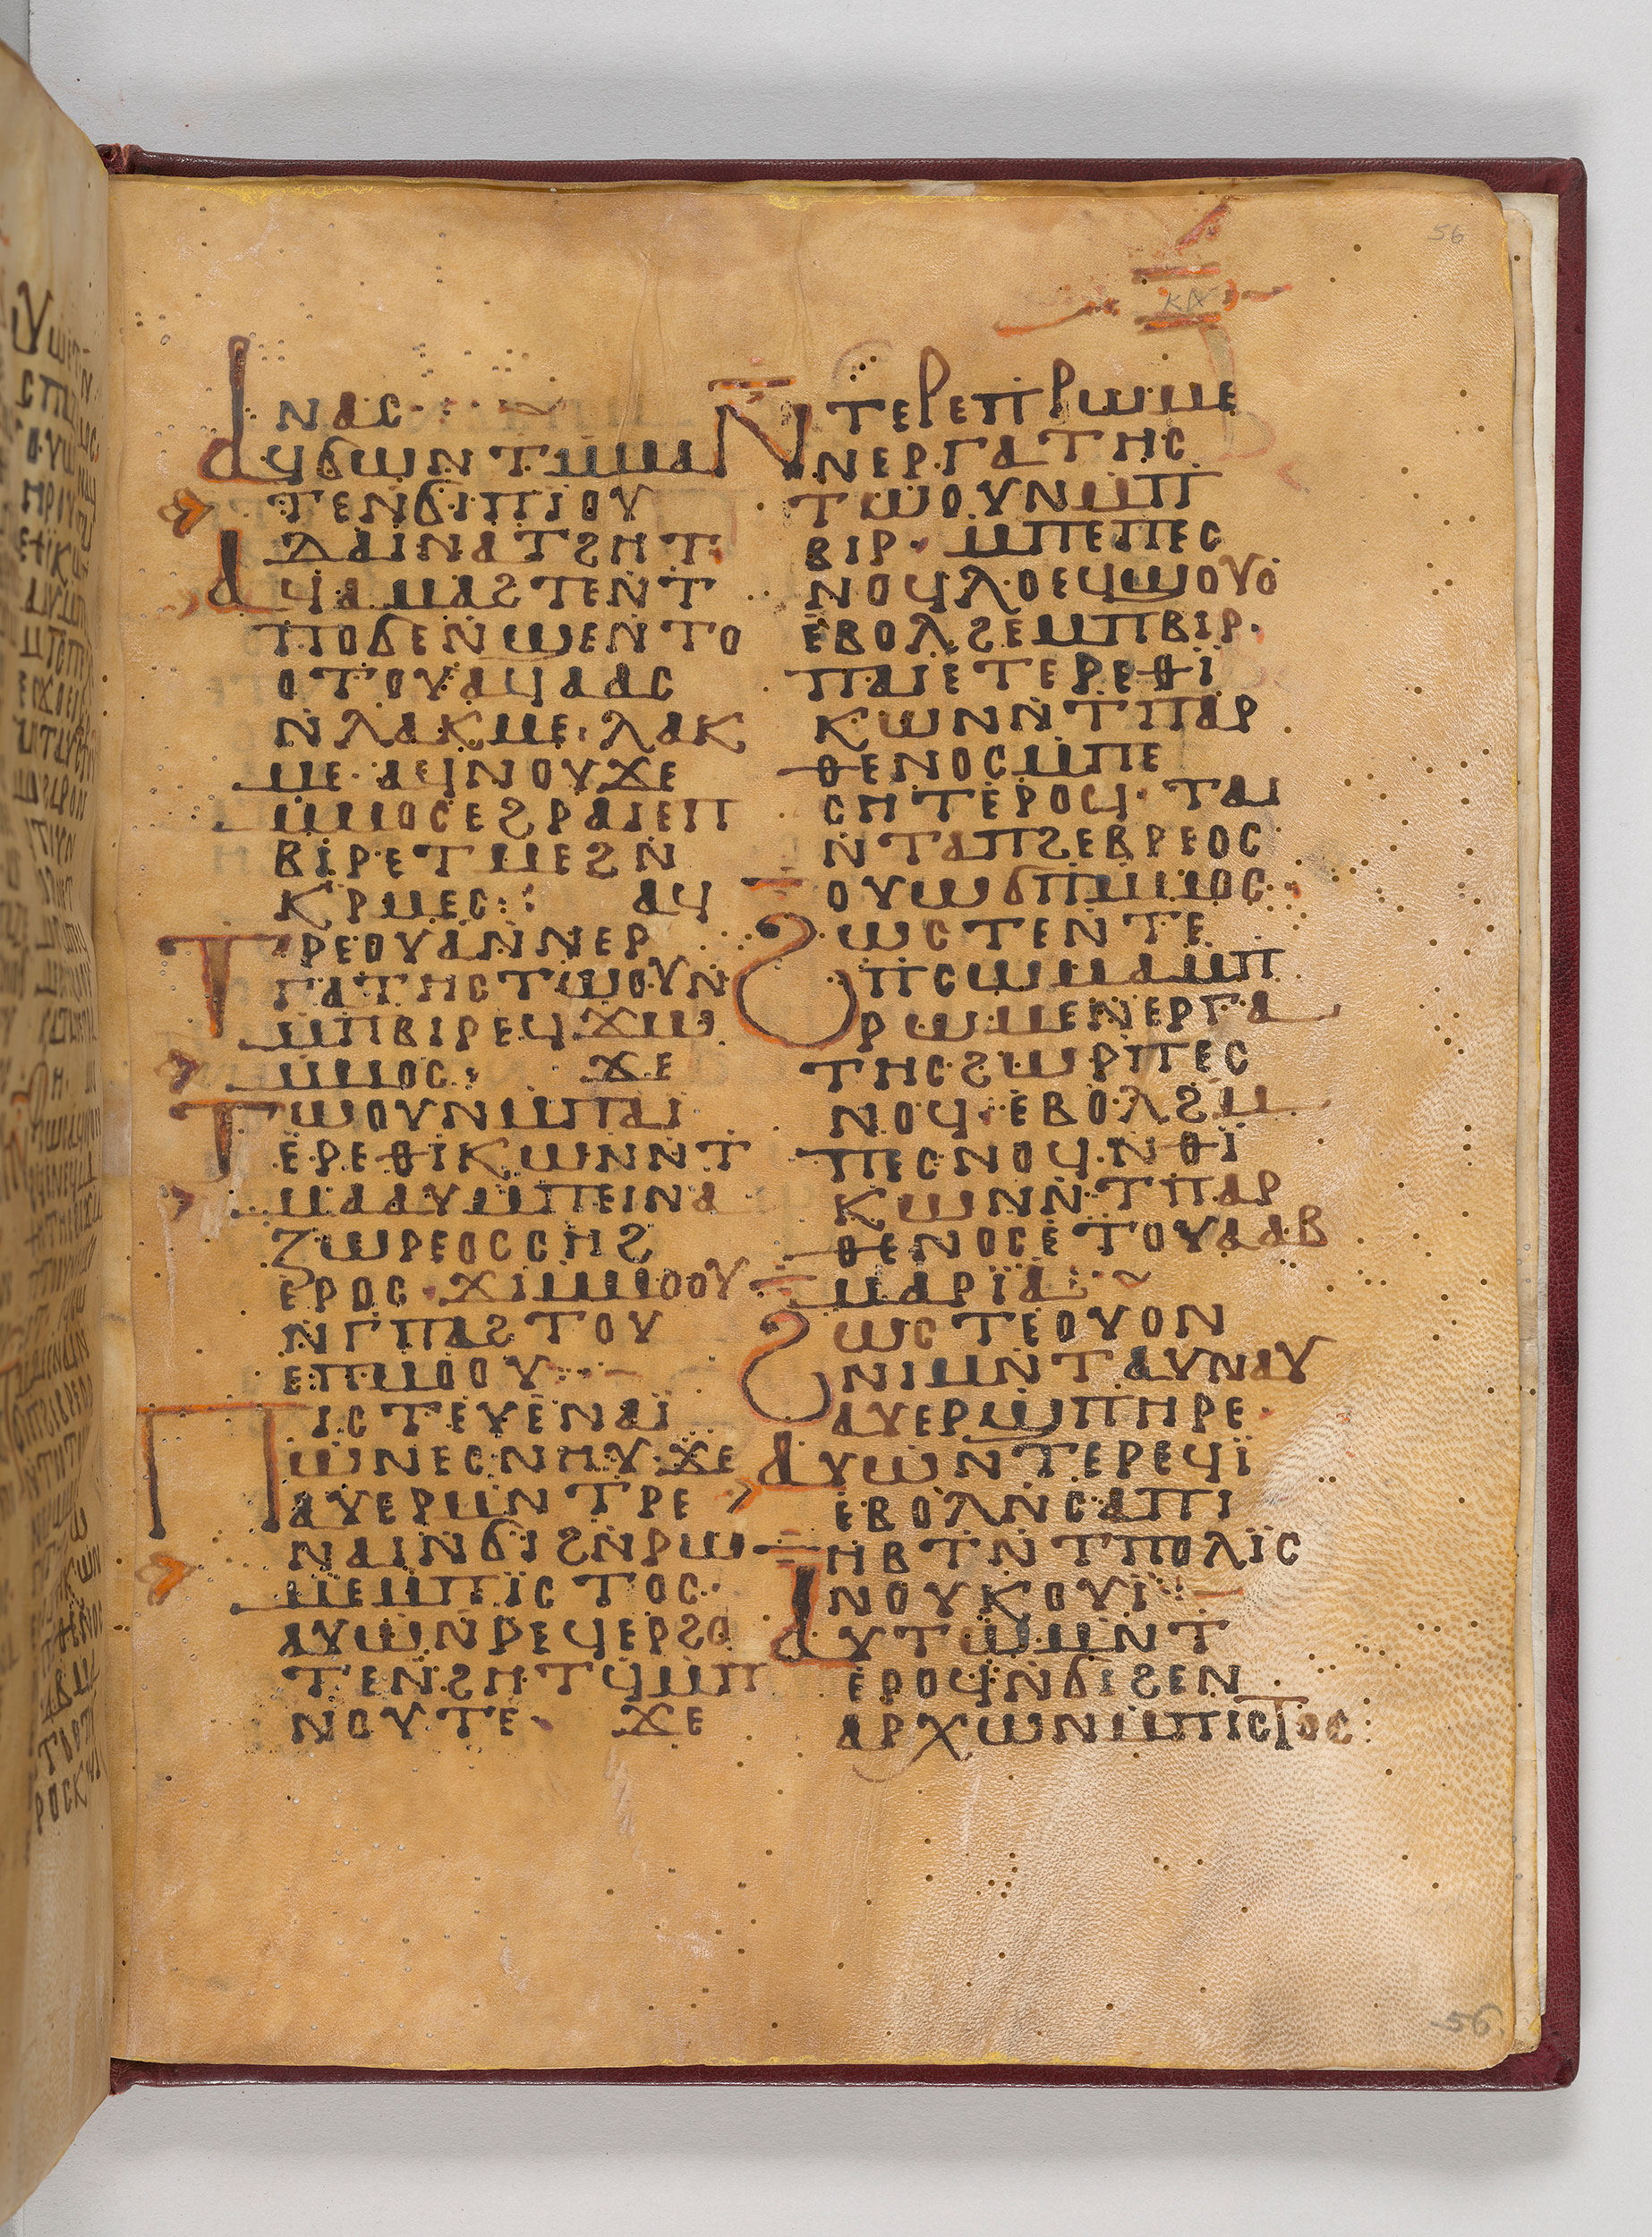 56
ⲕⲇ
ⲛⲁⲥ
ⲁϥϭⲱⲛⲧⲙⲙⲁ
ⲧⲉⲛϭⲓⲡⲓⲟⲩ
ⲇⲁⲓⲛⲁⲧϩⲏⲧ
ⲁϥⲁⲙⲁϩⲧⲉⲛⲧ
ⲡⲟϭⲉⲛϣⲉⲛⲧⲟ
ⲟⲧⲟⲩⲁϥⲁⲁⲥ
ⲛⲗⲁⲕⲙⲉ·ⲗⲁⲕ
ⲙⲉ·ⲁϥⲛⲟⲩϫⲉ
ⲙⲙⲟⲥⲉϩⲣⲁⲓⲉⲡ
ⲃⲓⲣⲉⲧⲙⲉϩⲛ
ⲕⲣⲙⲉⲥ⁝ ⲁϥ
ⲧⲣⲉⲟⲩⲁⲛⲛⲉⲣ
ⲅⲁⲧⲏⲥⲧⲱⲟⲩⲛ
ⲙⲡⲃⲓⲣⲉϥϫⲱ
ⲙⲙⲟⲥ· ϫⲉ
ⲧⲱⲟⲩⲛⲙⲡⲁⲓ
ⲉⲣⲉⲑⲓⲕⲱⲛⲛⲧ
ⲙⲁⲁⲩⲙⲡⲉⲓⲛⲁ
ⲍⲱⲣⲉⲟⲥⲥⲏϩ
ⲉⲣⲟⲥ·ϫⲓⲙⲙⲟⲟⲩ
ⲛⲅⲡⲁϩⲧⲟⲩ
ⲉⲡⲙⲟⲟⲩ
ⲡⲓⲥⲧⲉⲩⲉⲛⲁⲓ̈
ⲱⲛⲉⲥⲛⲏⲩ·ϫⲉ
ⲁⲩⲉⲣⲙⲛⲧⲣⲉ
ⲛⲁⲓⲛϭⲓϩⲛⲣⲱ
ⲙⲉⲙⲡⲓ̈ⲥⲧⲟⲥ·
ⲁⲩⲱⲛⲣⲉϥⲉⲣϩⲟ
ⲧⲉⲛϩⲏⲧϥⲙⲡ
ⲛⲟⲩⲧⲉ· ϫⲉ
ⲛⲧⲉⲣⲉⲡⲣⲱⲙⲉ
ⲛⲉⲣⲅⲁⲧⲏⲥ
ⲧⲱⲟⲩⲛⲙⲡ
ⲃⲓⲣ·ⲙⲡⲉⲡⲉⲥ
ⲛⲟϥⲗⲟⲉϥϣⲟⲩⲟ
ⲉⲃⲟⲗϩⲉⲙⲡⲃⲓⲣ·
ⲡⲁⲓⲉⲧⲉⲣⲉⲑⲓ̈
ⲕⲱⲛⲛⲧⲡⲁⲣ
ⲑⲉⲛⲟⲥⲙⲡⲉ
ⲥⲏⲧⲉⲣⲟϥ·ⲧⲁⲓ
ⲛⲧⲁⲡϩⲉⲃⲣⲉⲟⲥ
ⲟⲩⲱϭⲡⲙⲙⲟⲥ·
ϩⲱⲥⲧⲉⲛⲧⲉ
ⲡⲥⲱⲙⲁⲙⲡ
ⲣⲱⲙⲉⲛⲉⲣⲅⲁ
ⲧⲏⲥϩⲱⲣⲡⲉⲥ
ⲛⲟϥ·ⲉⲃⲟⲗϩⲙ
ⲡⲉⲥⲛⲟϥⲛⲑⲓ̈
ⲕⲱⲛⲛⲧⲡⲁⲣ
ⲑⲉⲛⲟⲥⲉⲧⲟⲩⲁⲁⲃ
ⲙⲁⲣⲓ̈ⲁ⁝~
ϩⲱⲥⲧⲉⲟⲩⲟⲛ
ⲛⲓⲙⲛⲧⲁⲩⲛⲁⲩ
ⲁⲩⲉⲣϣⲡⲏⲣⲉ·
ⲁⲩⲱⲛⲧⲉⲣⲉϥⲓ̈
ⲉⲃⲟⲗⲛⲥⲁⲡⲓ
ⲏⲃⲧⲛⲧⲡⲟⲗⲓ̈ⲥ
ⲛⲟⲩⲕⲟⲩⲓ̈
ⲁⲩⲧⲱⲙⲛⲧ
ⲉⲣⲟϥⲛϭⲓϩⲉⲛ
ⲁⲣⲭⲱⲛⲙⲡⲓⲥⲧⲟⲥ
56